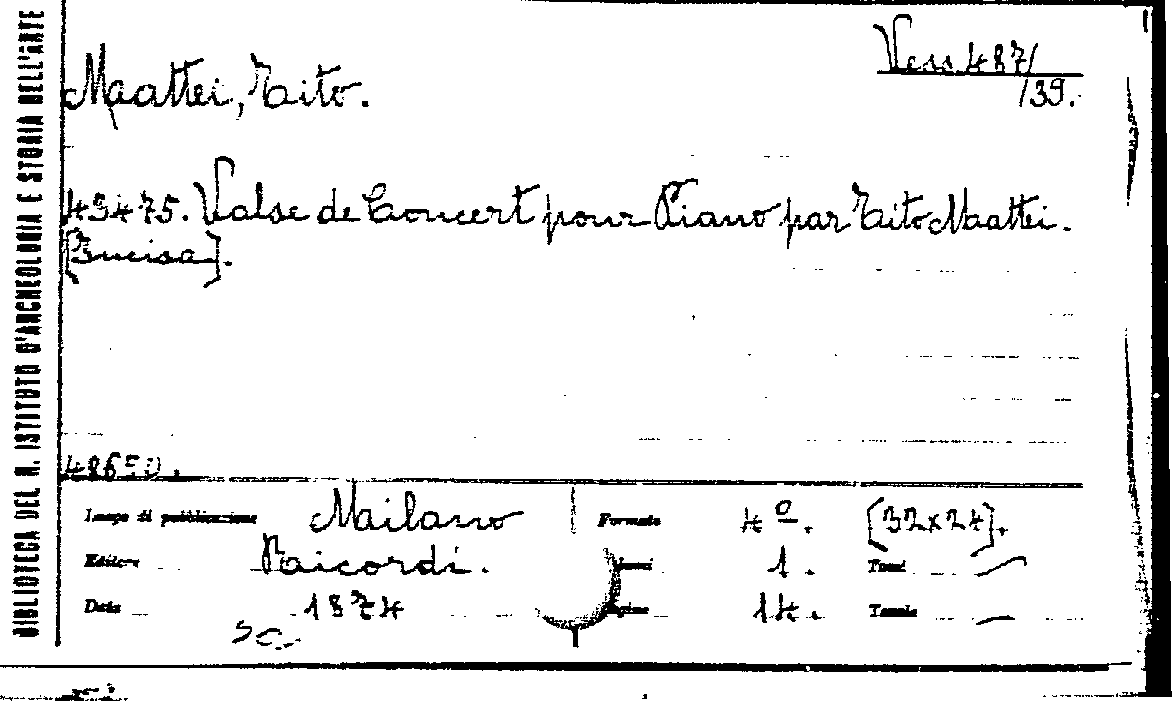 BIBLIOTECA DEL R. ISTITUTO D'ARCHEOLOGIA E STORIA DELL'ARTE
Vess 487/
/39.
Mattei, Tito.
43475. Valse de Concert pour Piano par Tito Mattei.
[Incisa].
48650.
Luogo di pubblicazione Milano Formato 4º. [32x24].
Editore Ricordi. 1. Tomi —
Data 1874 Pagine 14. Tavole —